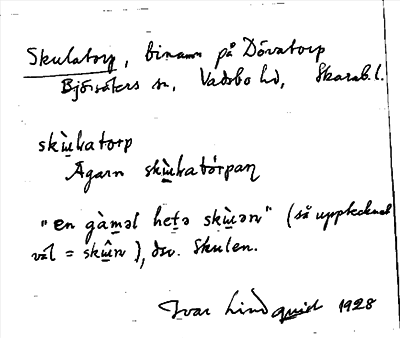 Skulatorp, binamn på Dövatorp
Björsäters sn, Vadsbo hd, Skarab.l.
skùlatorp
Ägarn skùlatórpaɳ
"en gàməl hetə skùən" (så upptecknat
väl = skûn), dvs. Skulen.
Ivar Lindquist 1928